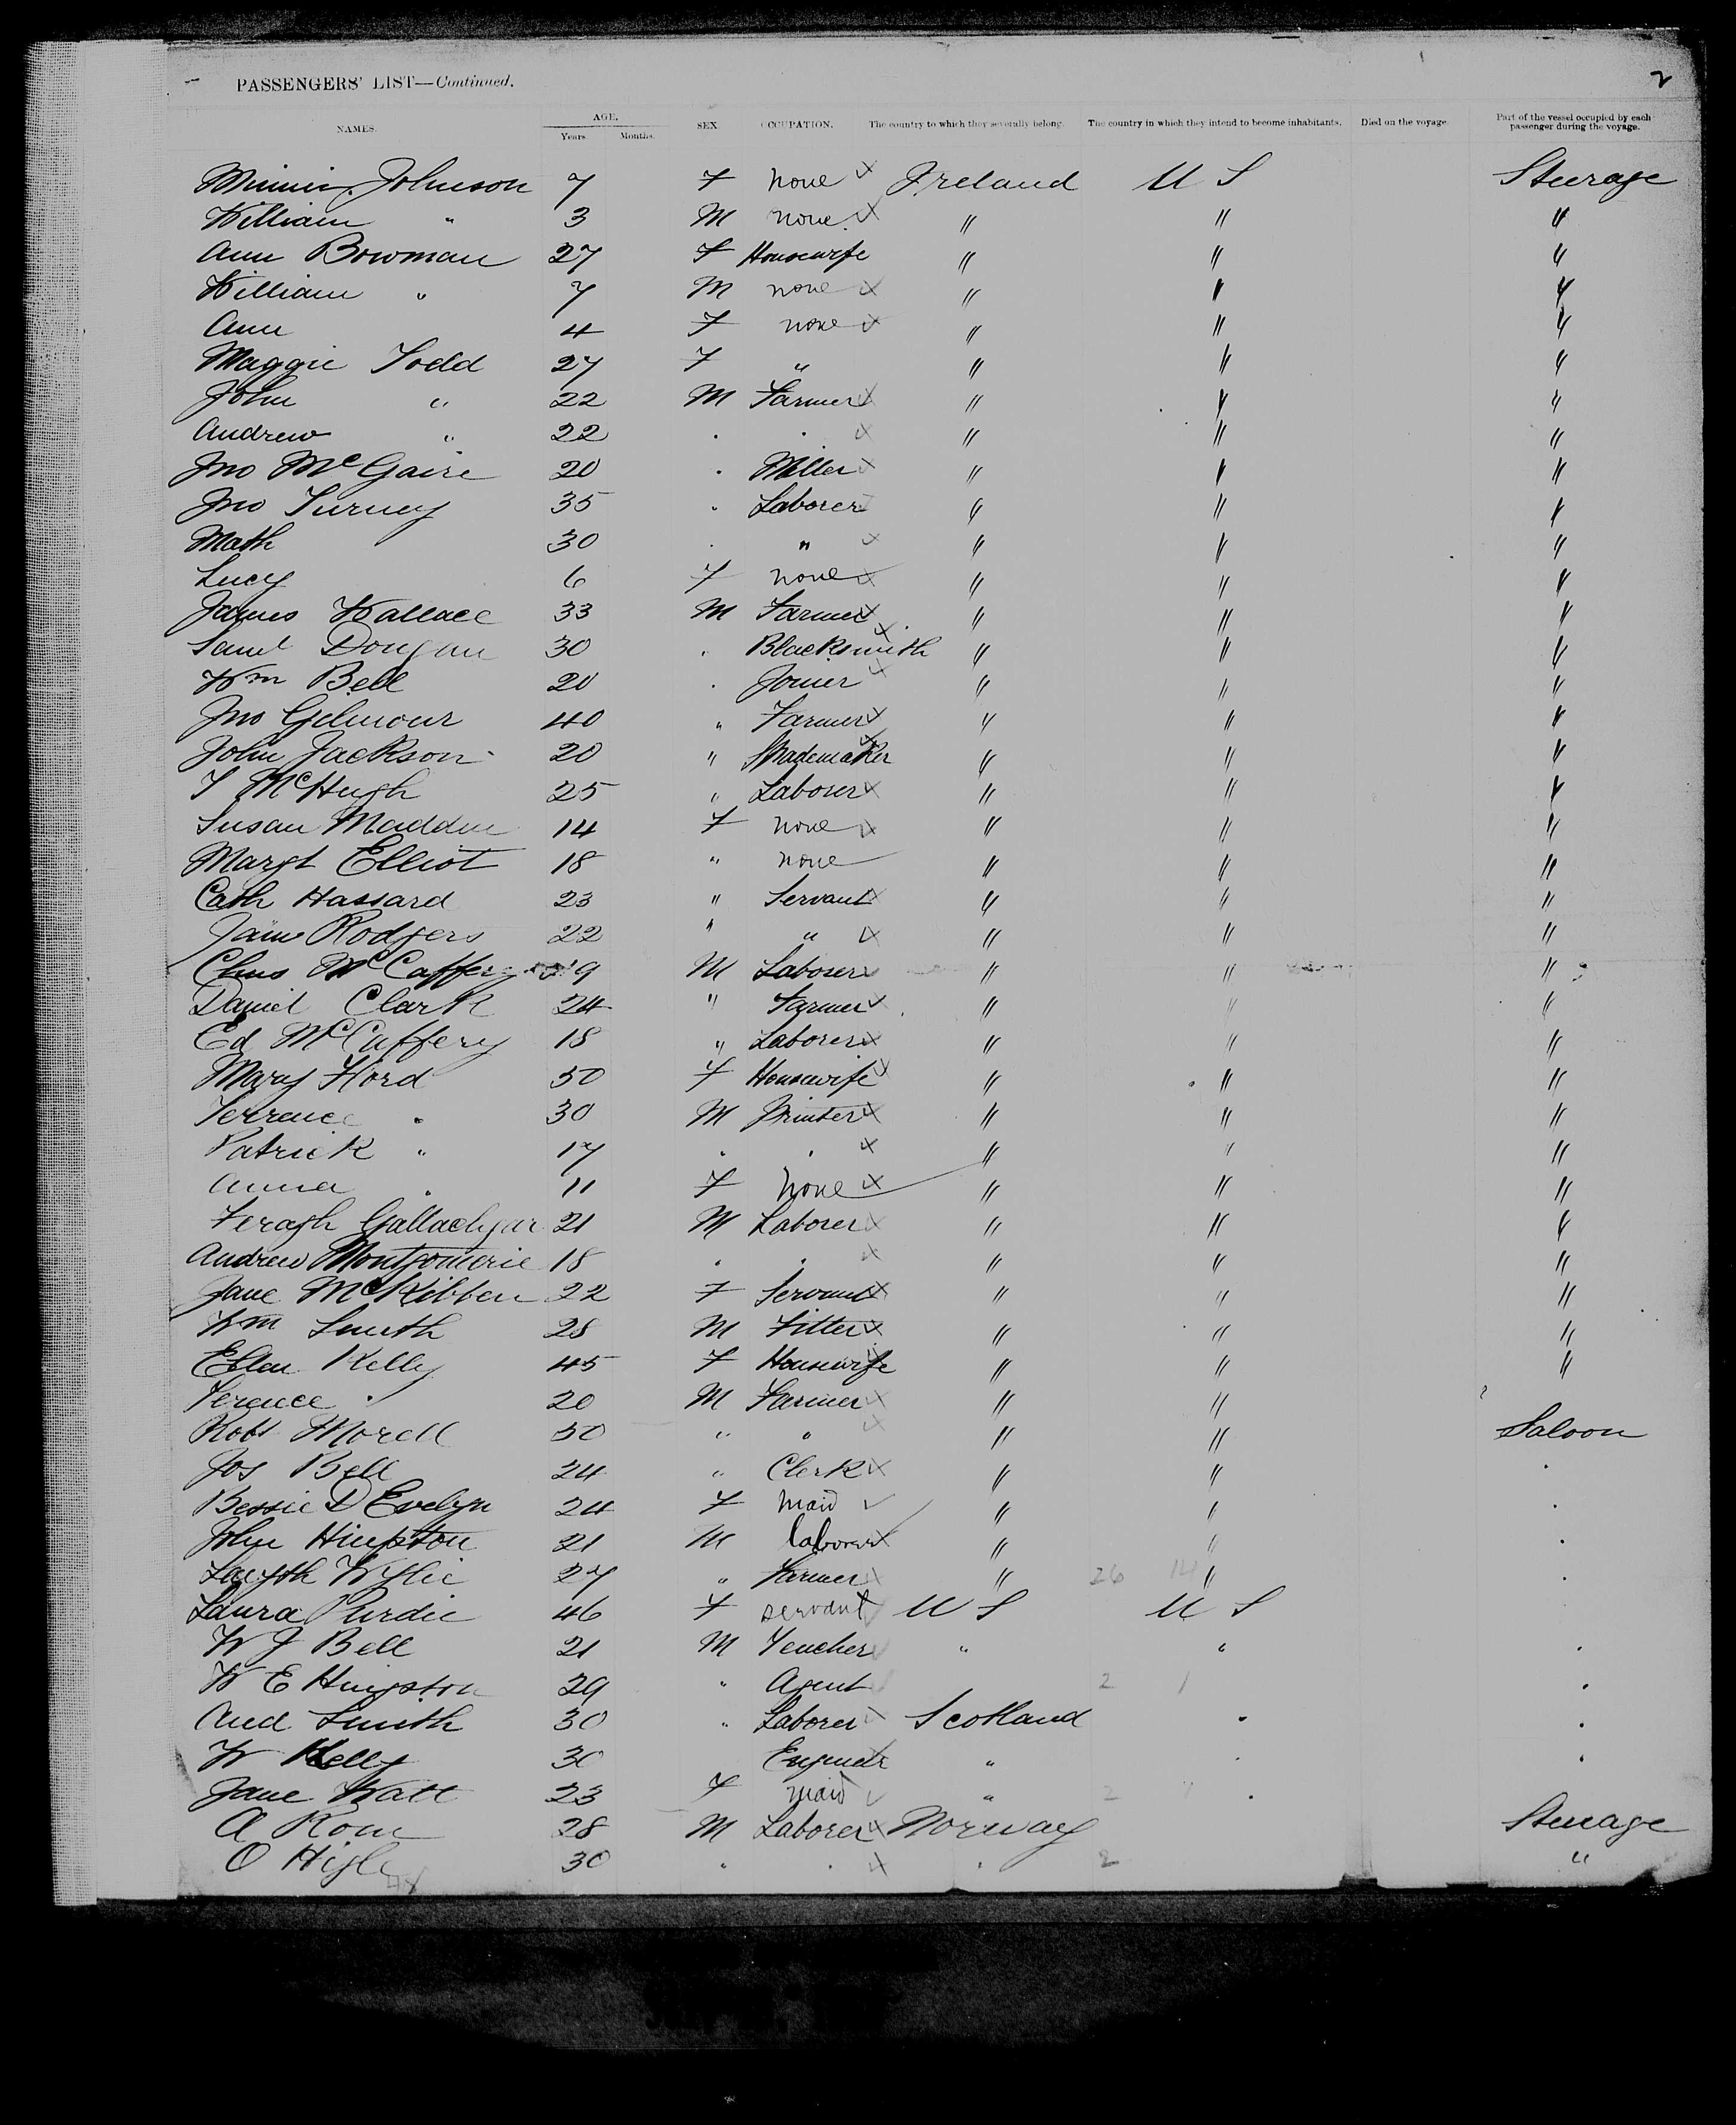 2
PASSENGERS' LIST—Continued.
NAMES. AGE. Years. Months. SEX. OCCUPATION. The country to which they severally belong. The country in which they intend to become inhabitants. Died on the voyage. Part of the vessel occupied by each passenger during the voyage.
Minnie Johnson 7 F none x Ireland U S Steerage
William " 3 M none x " " "
Ann Bowman 27 F Housewife " " "
William " 7 M none x " " "
Ann 4 F none x " " "
Maggie Todd 27 F " " " "
John " 22 M Farmer x " " "
Andrew " 22 . . x " " "
Jno McGaire 20 . Miller x " " "
Jno Turney 35 " Laborer " " "
Math 30 . " x " " "
Lucy 6 F none x " " "
James Wallace 33 M Farmer x " " "
Saml Dougan 30 . Blacksmith x " " "
Wm Bell 20 . Joiner x " " "
Jno Gilmour 40 " Farmer x " " "
John Jackson 20 " Spademaker x " " "
T McHugh 25 " Laborer x " " "
Susan Madden 14 F none x " " "
Margt Elliot 18 " none " " "
Cath Hassard 23 " Servant x " " "
Jane Rodgers 22 " " x " " "
Chas McCaffery 29 M Laborer x " " "
Daniel Clark 24 " Farmer x " " "
Ed McCaffery 18 " Laborer x " " "
Mary Hord 50 F Housewife x " " "
Terrence " 30 M Printer x " " "
Patrick " 17 " . x " " "
Anna " 11 F None x " " "
Feragh Gallachyar 21 M Laborer x " " "
Andrew Montgomerie 18 . . x " " "
Jane McKibben 22 F Servant x " " "
Wm Smith 28 M Fitter x " " "
Ellen Kelly 45 F Housewife x " " "
Terence " 20 M Farmer x " "
Robt Morell 50 " " x " " Saloon
Jos Bell 24 " Clerk x " " .
Bessie D Evelyn 24 F maid " " .
John Hingston 21 M laborer x " " .
Wylie 27 " Farmer x " 26 14 " .
Laura Purdie 46 F servant U S U S
W J Bell 21 M Teacher " " .
W E Hingston 29 " Agent 2 1 .
And Smith 30 " Laborer x Scotland . .
W Kelly 30 Engineer " . .
Jane Watt 23 F maid " 2 1 .
A Rom 28 M Laborer x Norway Steerage
O 30 " . x . 2 "